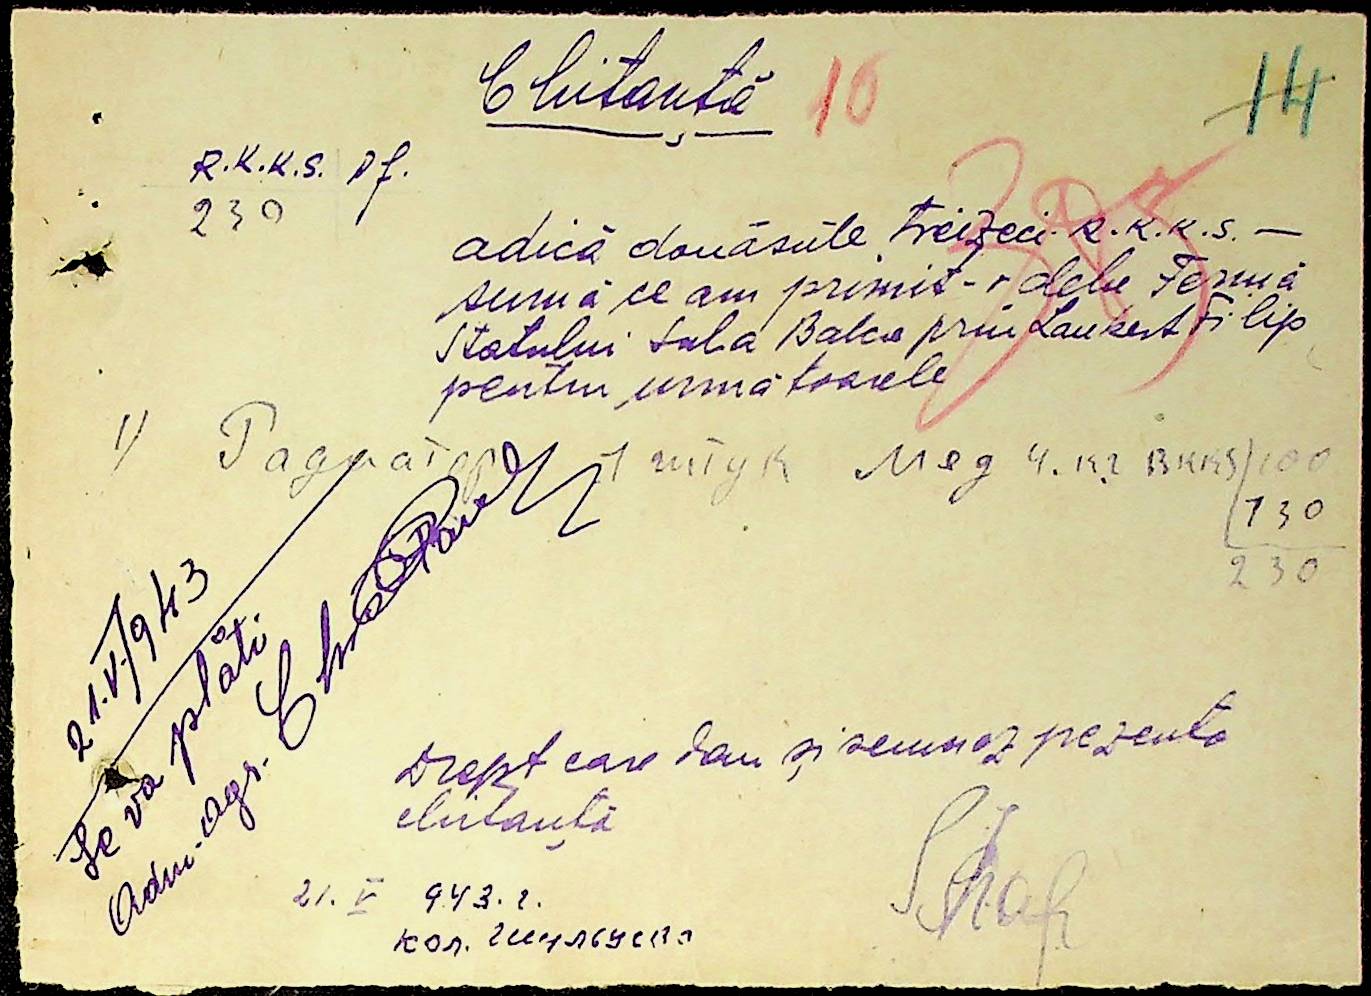 Chitanță 10 14
R.K.K.S. Pf.
230
adică douăsute treizeci R.K.K.S. —
sumă ce am primit-o dela Ferma
Statului Sala Balca prin Laukert Filip
pentru următoarele
1) Радиатор 1 штук Мед 4. кг ВККS 100
130
230
21.V.1943
Se va plăti
Adm. Agr.
Drept care dau și semnez pezenta
chitanță
21. V 943.г.
кол.